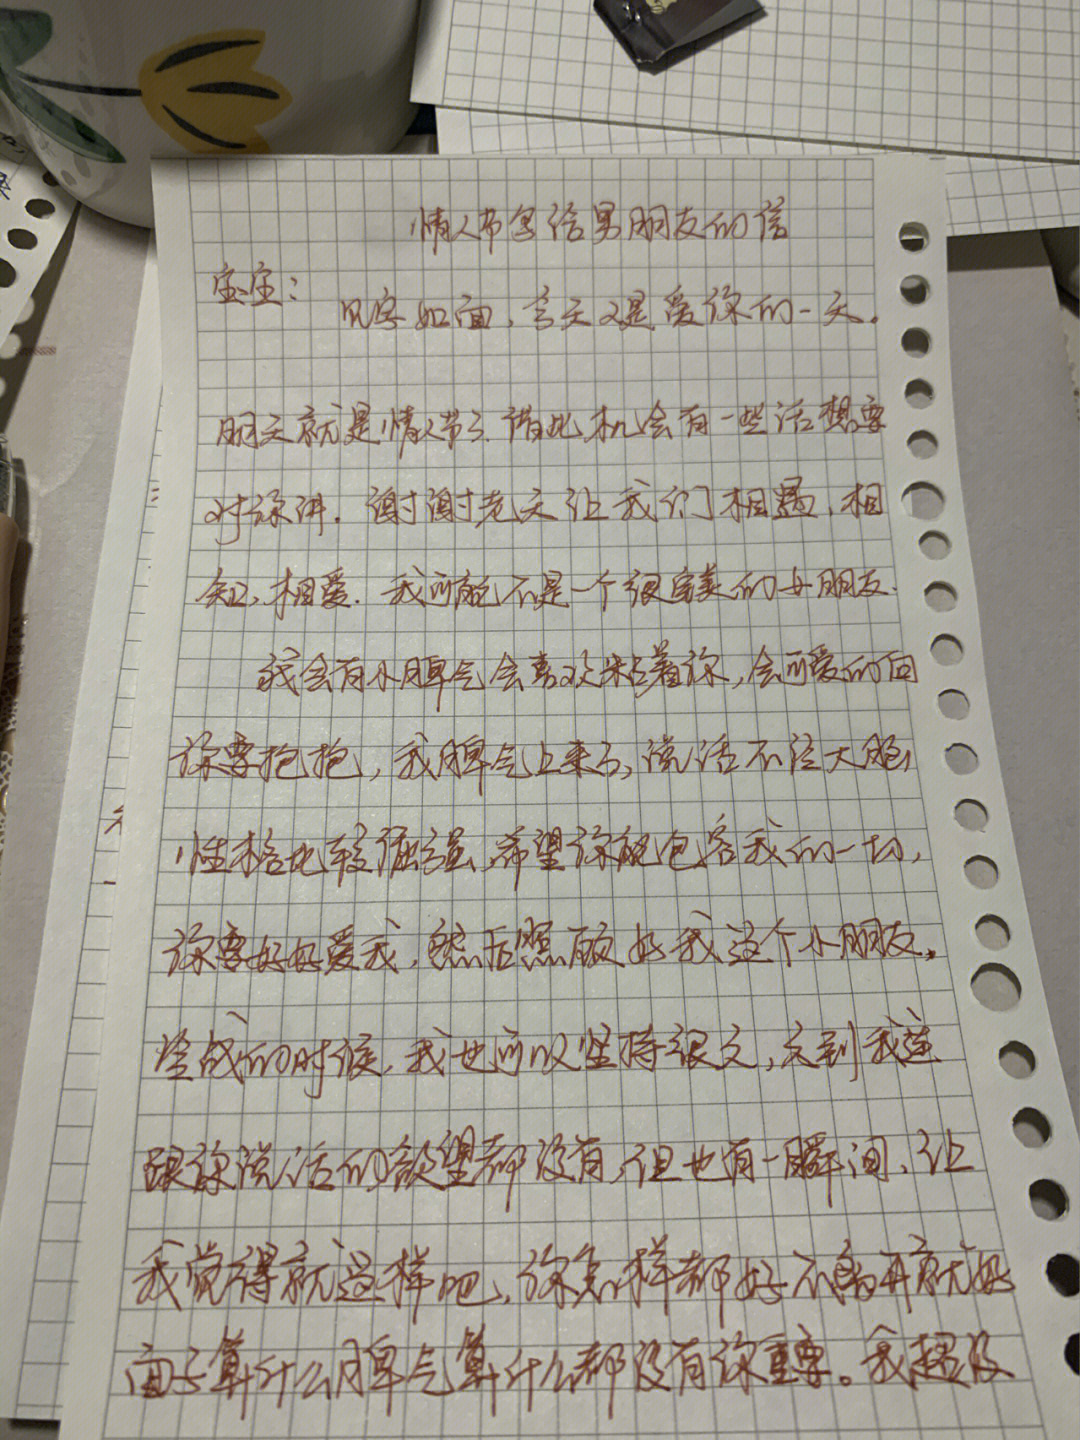 情人节写给男朋友的信
宝宝:
见字如面,今天又是爱你的一天。
明天就是情人节了.借此机会有一些话想要
对你讲.谢谢老天让我们相遇,相
知,相爱.我可能不是一个很完美的女朋友.
我会有小脾气会喜欢粘着你,会可爱的向
你要抱抱,我脾气上来了,说话不经大脑,
性格比较倔强,希望你能包容我的一切,
你要好好爱我,然后照顾好我这个小朋友,
冷战的时候,我也可以坚持很久,久到我连
跟你说话的欲望都没有,但也有一瞬间,让
我觉得就这样吧,你怎样都好不离开就好
面子算什么脾气算什么都没有你重要。我超级